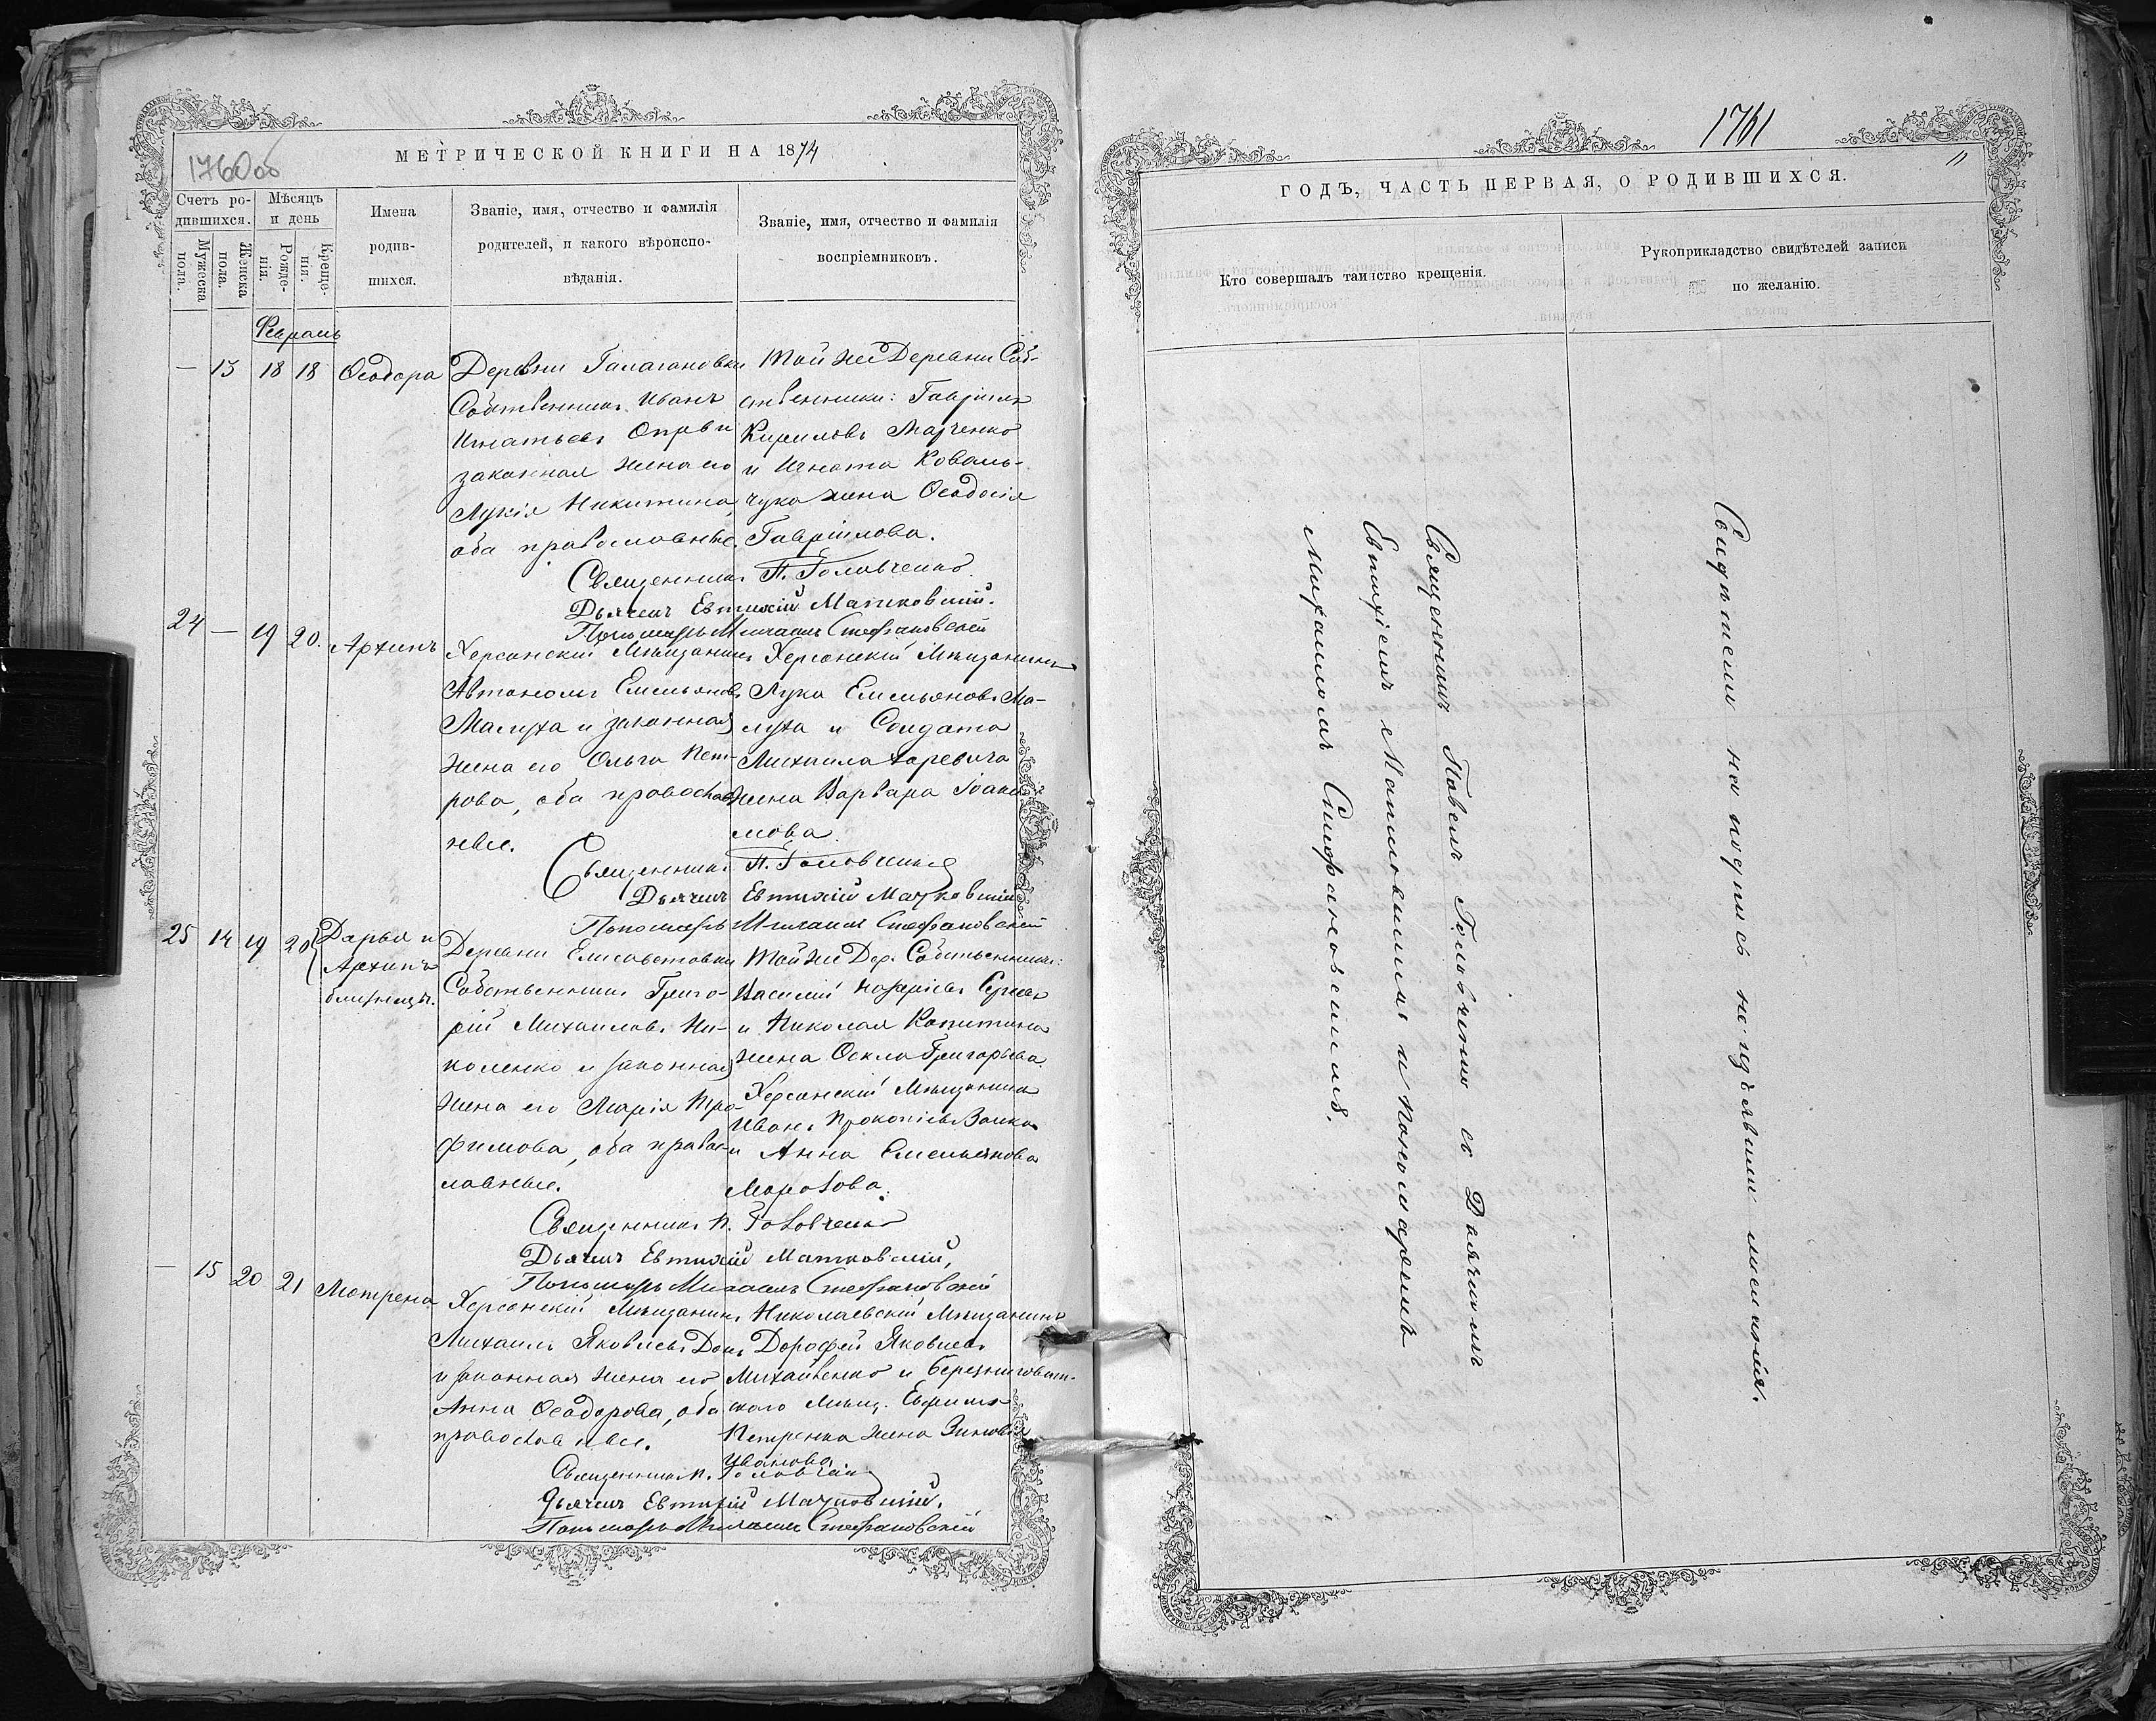 МЕТРИЧЕСКОЙ КНИГИ НА 1874
1760 об
Счетъ родившихся.
Мужеска пола.
Женска пола.
Мѣсяцъ и день
Рожденія.
Крещенія.
Имена родившихся.
Званіе, имя, отчество и фамилія
родителей, и какого вѣроисповѣданія.
Званіе, имя, отчество и фамилія
воспріемниковъ.
Февраль
— 13 18 18 Ѳеодора
Деревни Галагановки
Собственникъ Иванъ
Игнатьевъ и
законная жена его
Лукія Никитина,
оба православные.
Той же Деревни Соб-
ственники: Гавріилъ
Кириловъ Марченко
и Игната Коваль-
чука жена Ѳеодосія
Гавріилова.
Священникъ П. Головченко
Дьячекъ Евтихій Матковскій.
Пономарь Михаилъ Стефановскій
24 — 19 20. Архипъ
Херсонскій Мѣщанинъ
Автономъ Емельяновъ
Малуха и законная
жена его Ольга Пет-
рова, оба православ-
ные.
Херсонскій Мѣщанинъ
Лука Емельяновъ Ма-
луха и Солдата
Михаила
жена Варвара Іоаки-
мова
Священникъ П. Головченко
Дьячекъ Евтихій Матковскій
Пономарь Михаилъ Стефановскій
25 14 19 20 Дарья и
Архипъ
близнецы.
Деревни Елисаветовки
Собственникъ Григо-
рій Михаиловъ Ни-
коленко и законная
жена его Марія Тро-
фимова, оба право-
славные.
Той же Дер. Собственники:
Василій Назаріевъ
и Николая Капитина
жена Ѳекла Григорьева.
Херсонскій Мѣщанинъ
Иванъ Прокопіевъ
и Анна Емельянова
Морозова.
Священникъ П. Головченко
Дьячекъ Евтихій Матковскій,
Пономарь Михаилъ Стефановскій
— 15 20 21 Мотрена
Херсонскій Мѣщанинъ
Михаилъ Яковлевъ
и законная жена его
Анна Ѳеодорова, оба
православные.
Николаевскій Мѣщанинъ
Дорофей Яковлевъ
и Березниговат-
скаго Мѣщ. Ефима
Петренка жена Зиновія
Иванова
Священникъ П. Головченко
Дьячекъ Евтихій Матковскій.
Пономарь Михаилъ Стефановскій
1761
11
ГОДЪ, ЧАСТЬ ПЕРВАЯ, О РОДИВШИХСЯ.
Кто совершалъ таинство крещенія.
Рукоприкладство свидѣтелей записи
по желанію.
Священникъ Павелъ Головченко съ Дьячкомъ
Евтихіемъ Матковскимъ и Пономаремъ
Михаиломъ Стефановскимъ.
Свидѣтели на подпись не изъявили желанія.